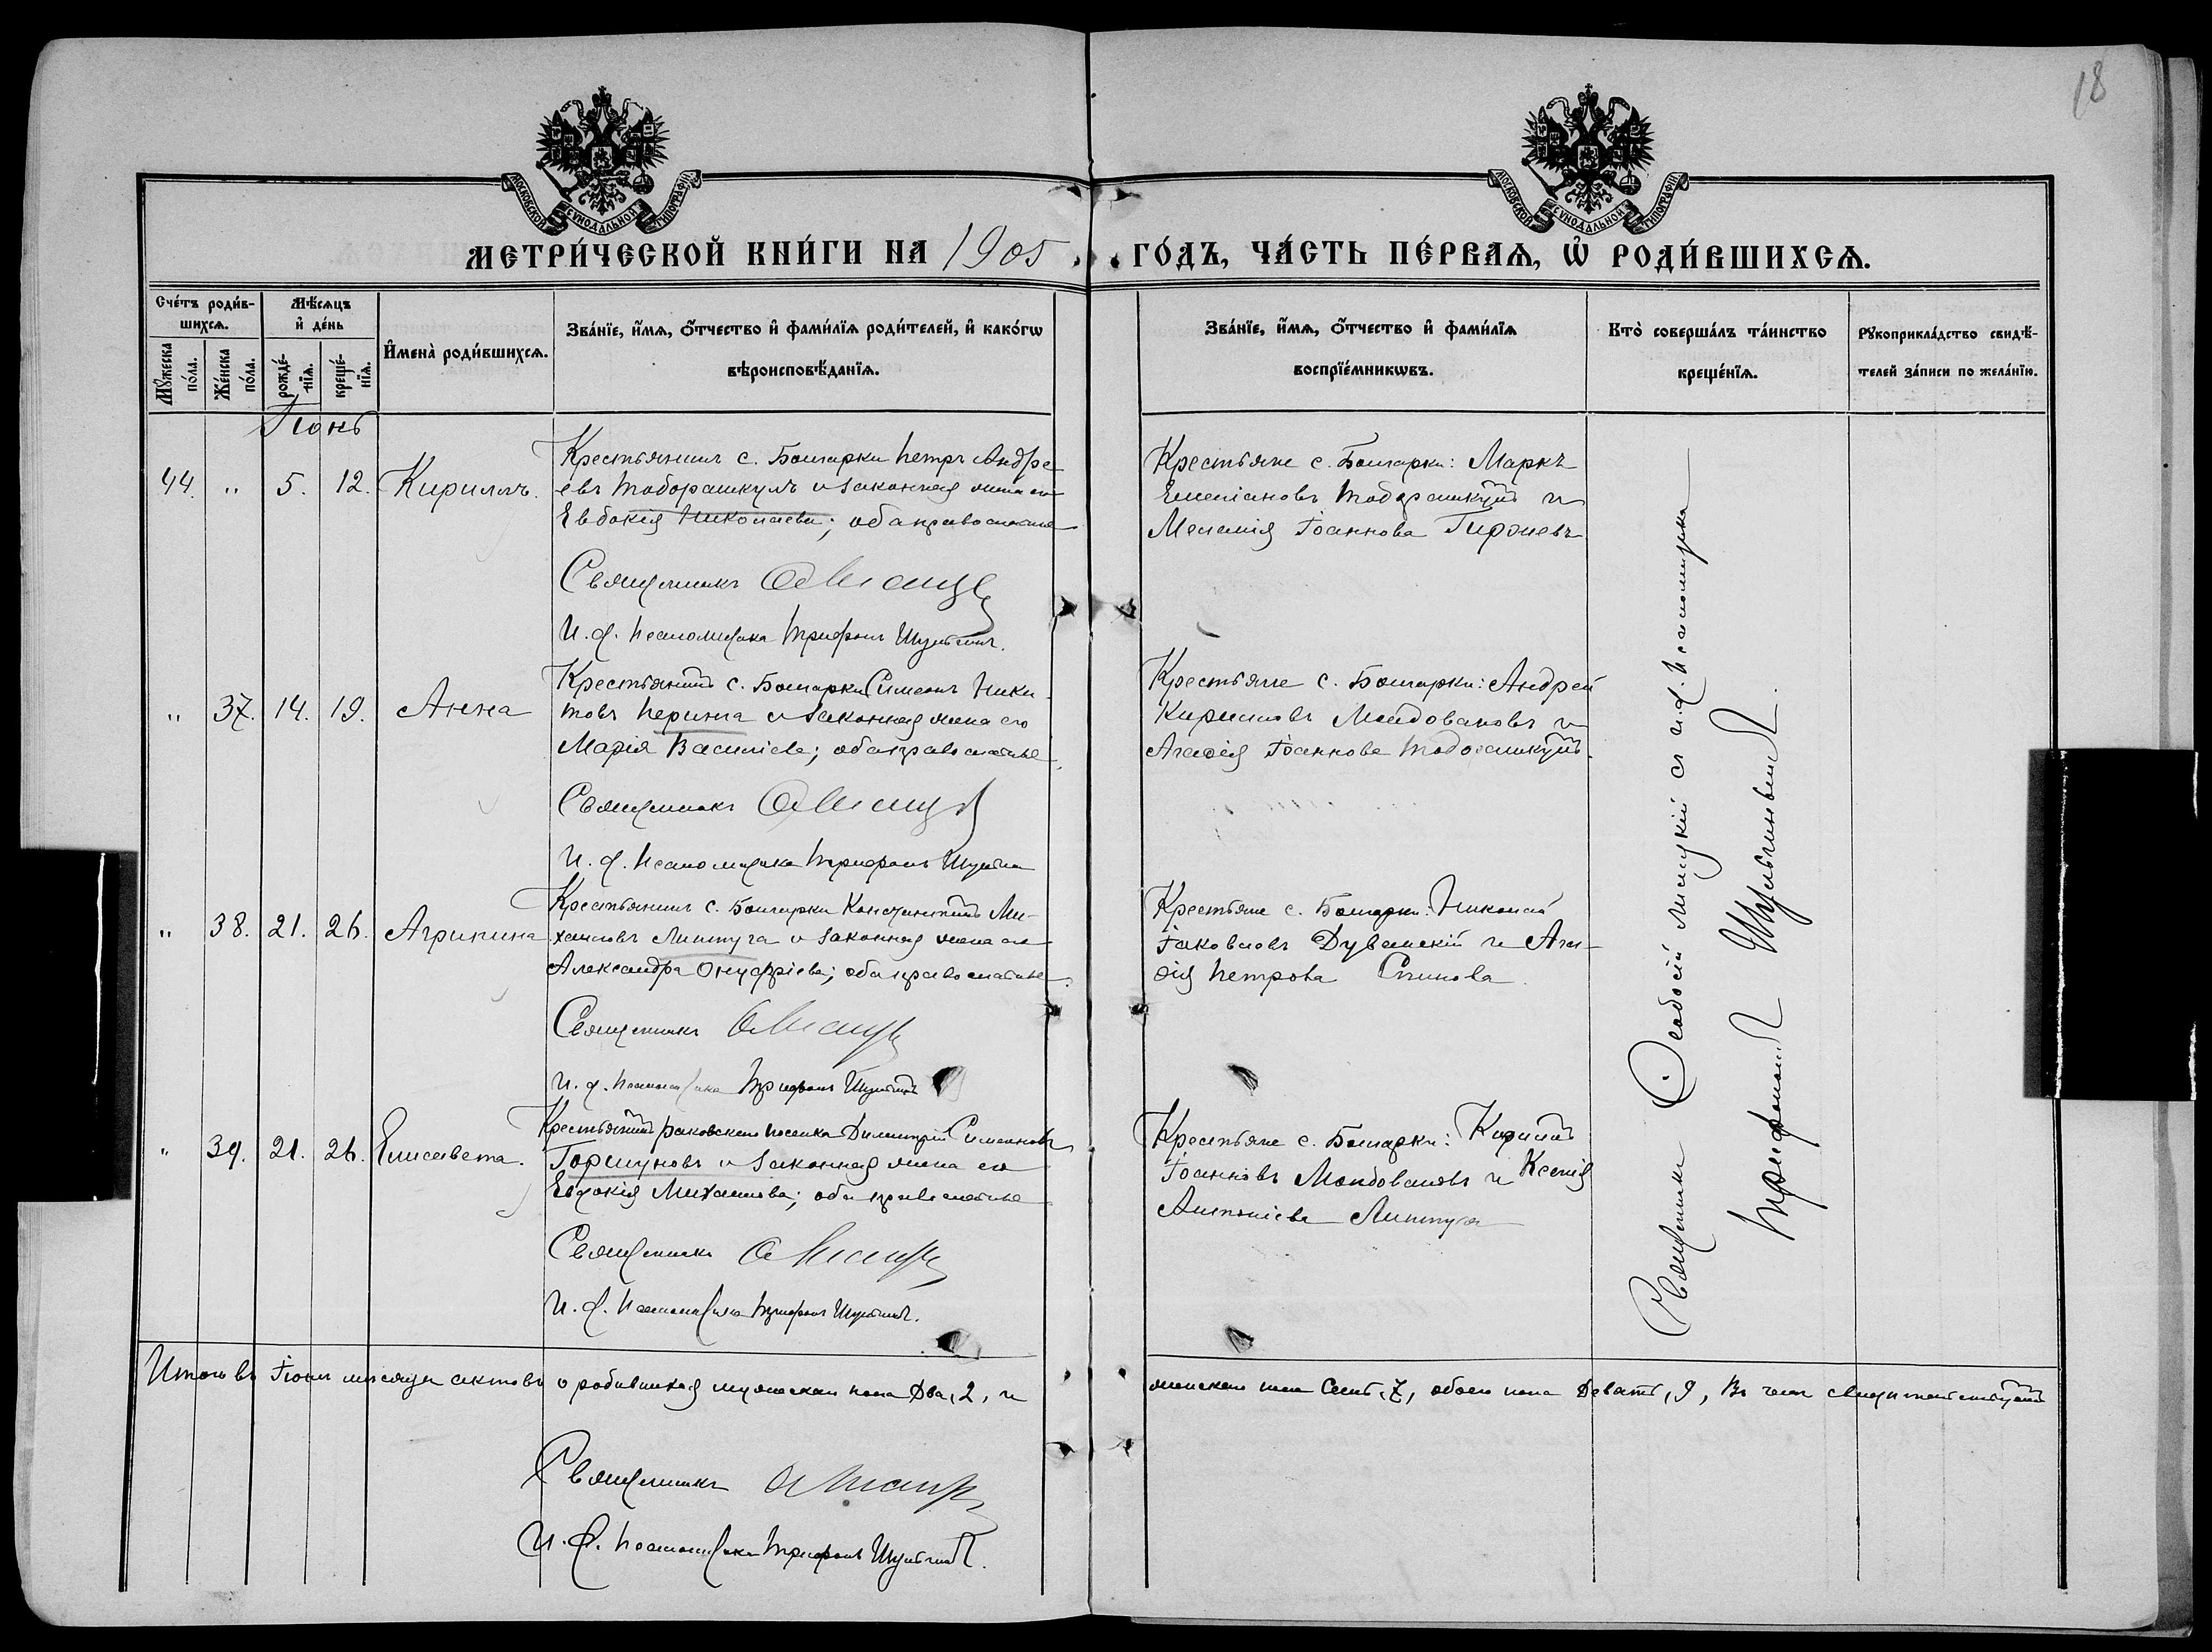 18
МОСКОВСКОЙ СѴНОДАЛЬНОЙ ТИПОГРАФІИ
МОСКОВСКОЙ СѴНОДАЛЬНОЙ ТИПОГРАФІИ
МЕТРИ́ЧЕСКОЙ КНИ́ГИ НА 1905 ГО́ДЪ, ЧА́СТЬ ПЕ́РВАѦ, Ѽ РОДИ́ВШИХСѦ.
Сче́тъ роди́в-
шихсѧ.
Мꙋ́жеска
по́ла.
Же́нска
по́ла.
Мѣ́сѧцъ
и҆ де́нь
рожде́-
нїѧ.
креще́-
нїѧ.
И҆мена̀ роди́вшихсѧ.
Зва́нїе, и҆́мѧ, ѻ҆́тчество и҆ фами́лїѧ роди́телей, и҆ како́гѡ
вѣроисповѣ́данїѧ.
Зва́нїе, и҆́мѧ, ѻ҆́тчество и҆ фами́лїѧ
воспрїе́мникѡвъ.
Кто̀ соверша́лъ та́инство
креще́нїѧ.
Рꙋкоприкла́дство свидѣ́-
телей за́писи по жела́нїю.
Іюнь
44. " 5. 12. Кириллъ.
Крестьянинъ с. Болгарки Петръ Андре-
евъ Тодорашкулъ и законная жена его
Евдокія Николаева; оба православные
Священникъ
И. д. Псаломщика Трифонъ Шульгинъ.
Крестьяне с. Болгарки: Маркъ
Емеліановъ Тодорашкулъ и
Меланія Іоаннова Гиржевъ
" 37. 14. 19. Анна
Крестьянинъ с. Болгарки Симеонъ Ники-
товъ Перинга и законная жена его
Марія Василіева; оба православные.
Священникъ
И. д. Псаломщика Трифонъ Шульгинъ
Крестьяне с. Болгарки: Андрей
Кирилловъ Молдовановъ и
Агафія Іоаннова Тодорашкулъ.
" 38. 21. 26. Агрипина
Крестьянинъ с. Болгарки Константинъ Ми-
хаиловъ Липтуга и законная жена его
Александра Онуфріева; оба православные.
Священникъ
И. д. Псаломщика Трифонъ Шульгинъ
Крестьяне с. Болгарки: Николай
Іаковлевъ Дуванскій и Ага-
ѳія Петрова Спинова
" 39. 21. 26. Елисавета.
Крестьянинъ Раковскаго поселка Димитрій Симеоновъ
Горшуновъ и законная жена его
Евдокія Михаилова; оба православные
Священникъ
И. д. Псаломщика Трифонъ Шульгинъ.
Крестьяне с. Болгарки: Кириллъ
Іоанновъ Молдовановъ и Ксенія
Антоніева Липтуга
Священникъ Ѳеодосій съ и. д. Псаломщика
Трифономъ Шульгинымъ.
Итого въ Іюнѣ мѣсяцѣ актовъ о родившихся мужескаго пола два, 2, и
женскаго пола семь, 7, обоего пола девять, 9, въ чемъ свидѣтельствуютъ
Священникъ
И. д. Псаломщика Трифонъ Шульгинъ.